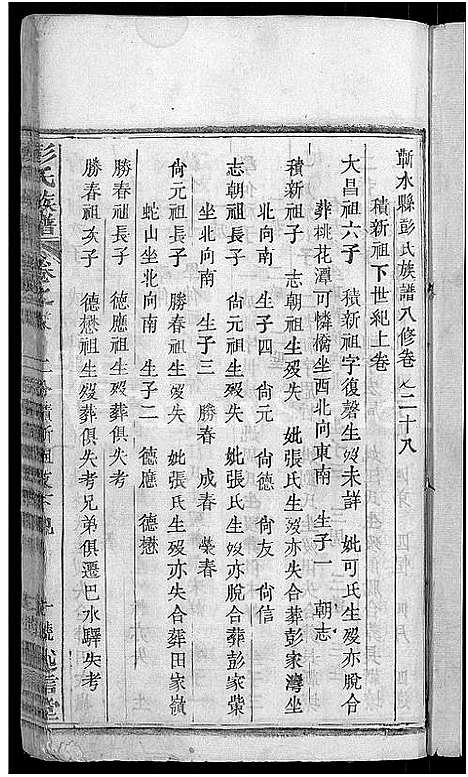 蘄水縣彭氏族譜八修卷之二十八
積新祖下世紀上卷
大昌祖六子　積新祖字復磬生歿未詳　妣可氏生歿亦脫合
葬桃花潭可憐橋坐西北向東南　生子一　朝志
積新祖子　志朝祖生歿失　妣張氏生歿亦失合葬彭家灣坐
北向南　生子四　尙元　尙德　尙友　尙信
志朝祖長子　尙元祖生歿失　妣張氏生歿脫合葬彭家柴
坐北向南　生子三　勝春　成春　榮春
尙元祖長子　勝春祖生歿失　妣張氏生歿亦失合葬田家嶺
蛇山坐北向南　生子二　德應　德懋
勝春祖長子　德應祖生歿失考
勝春祖次子　德懋祖生歿葬俱失考兄弟俱遷巴水驛失考
彭氏族譜　卷之　積新祖　述信堂